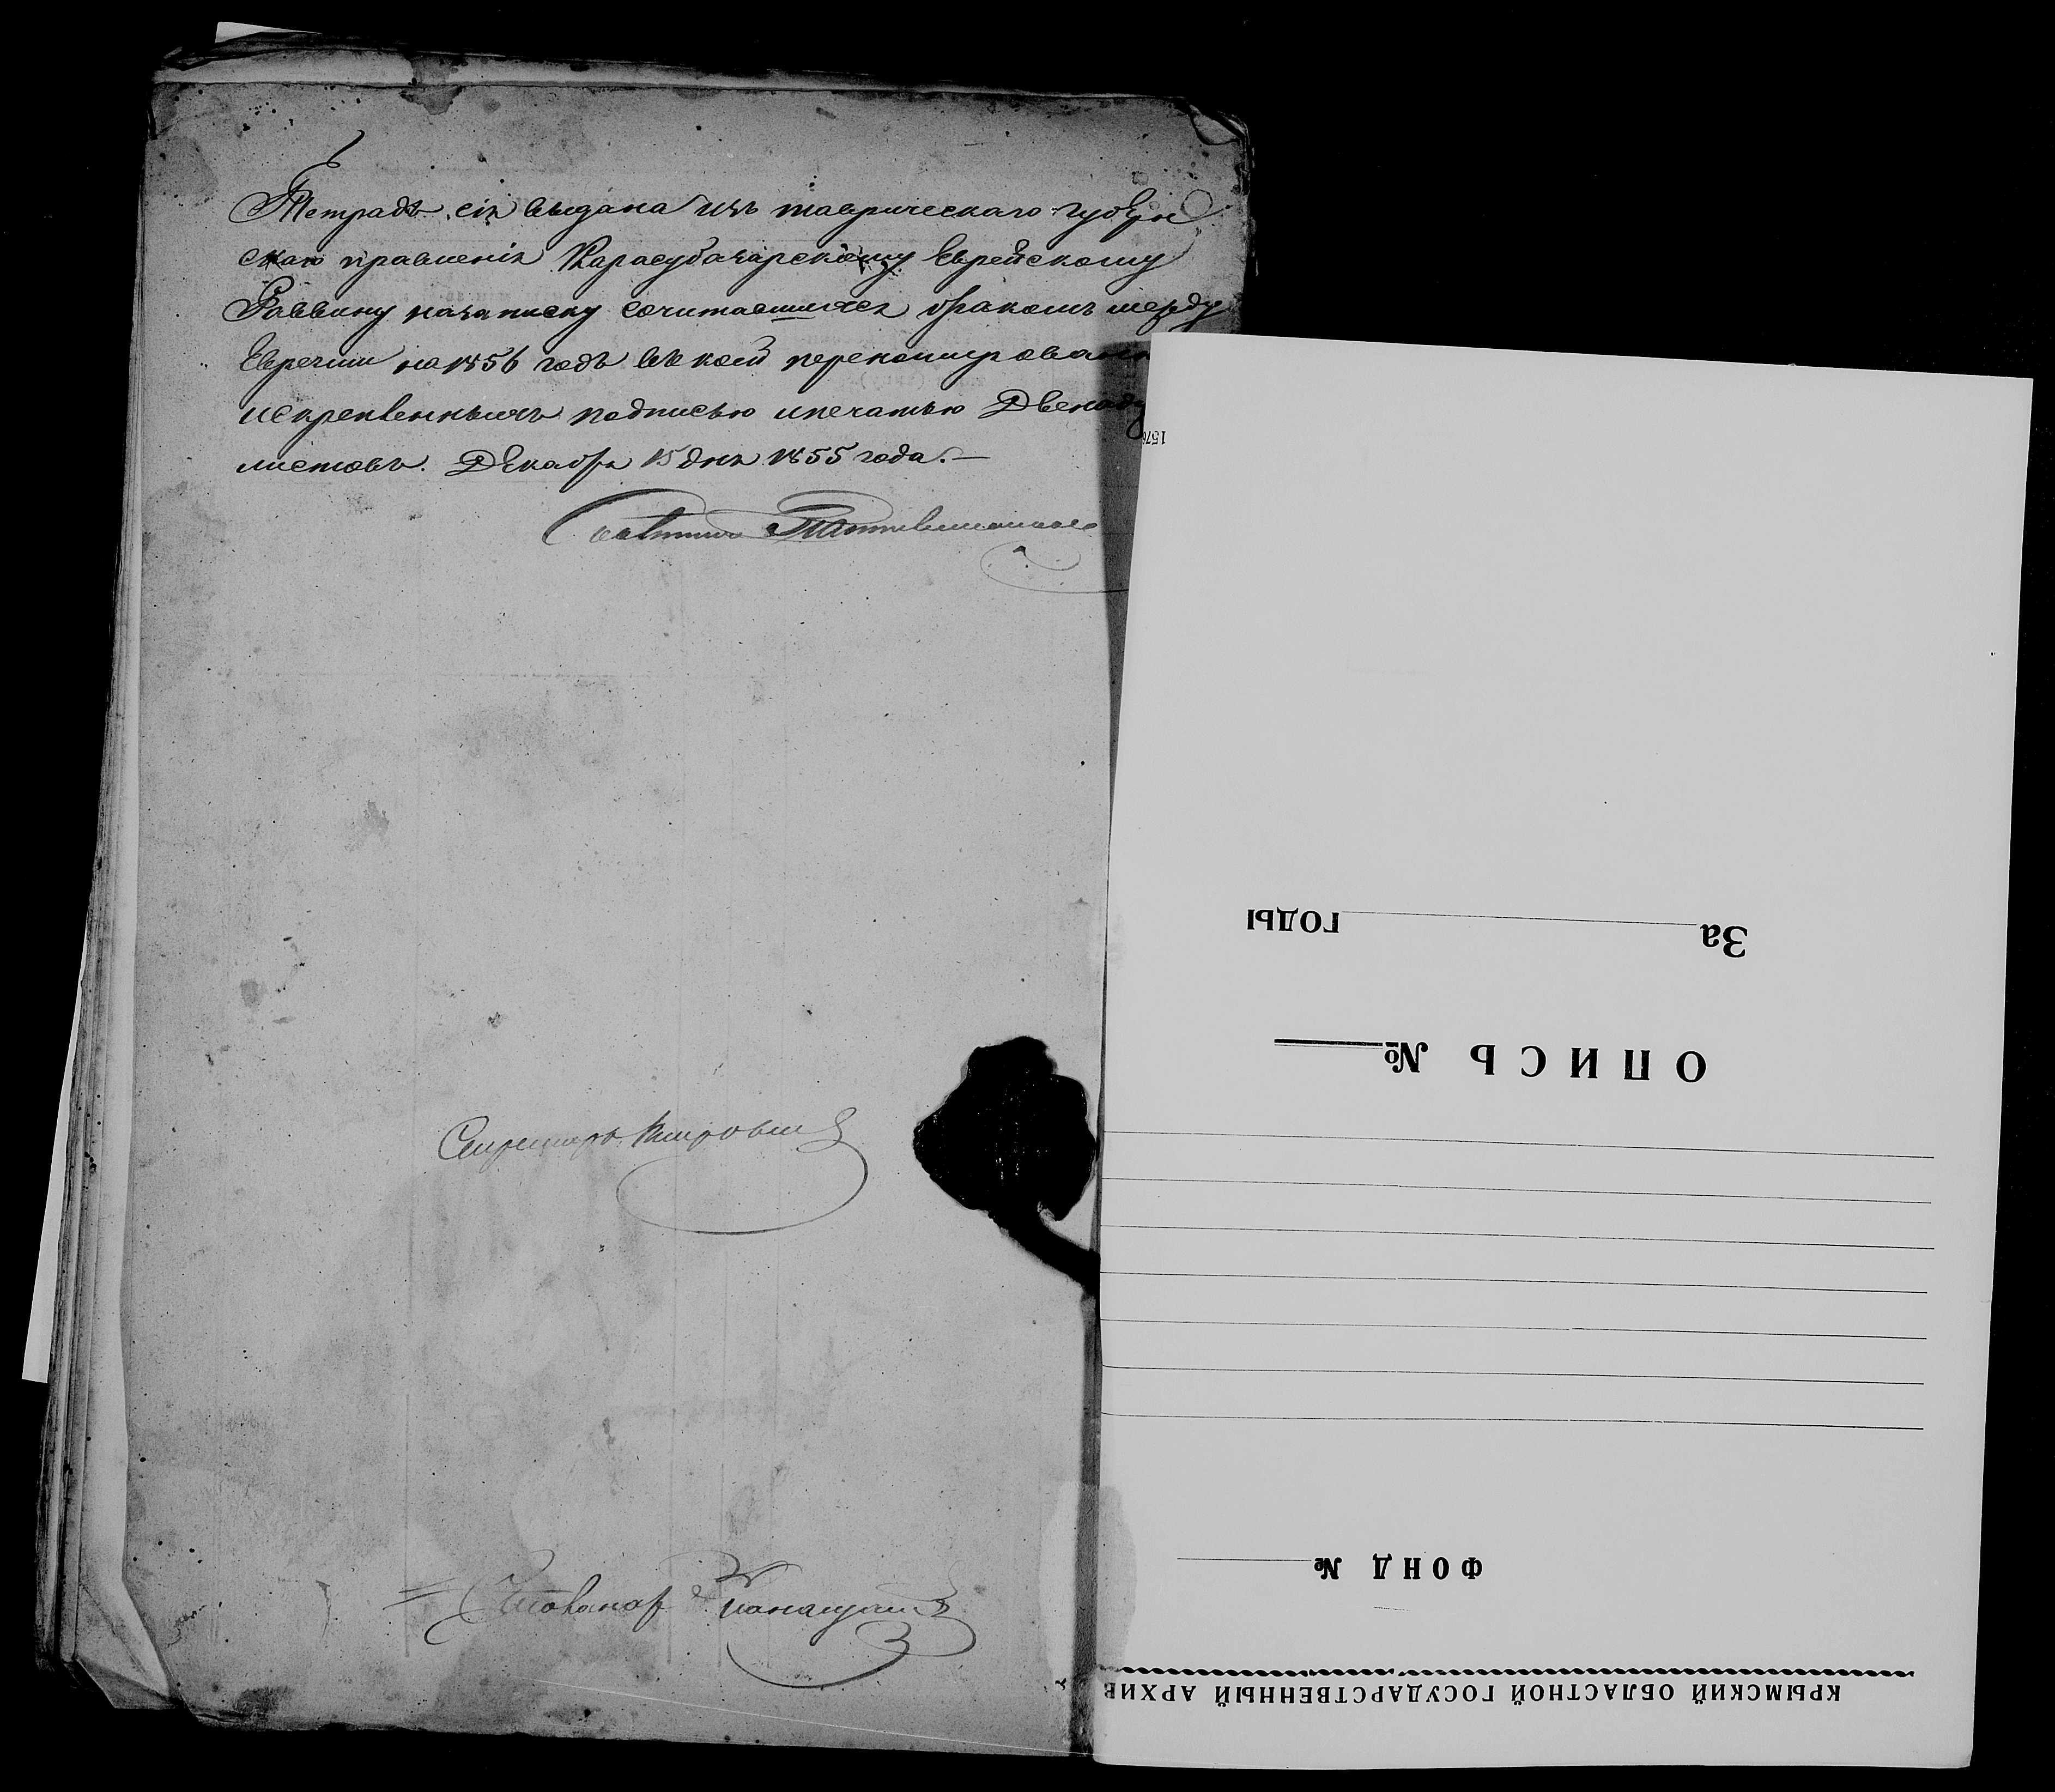 Тетрадь сія выдана изъ таврическаго губерн
скаго правленія Карасубазарскому Еврейскому
Раввину на записку сочитавшихся бракомъ между
Евреями на 1856 годъ въ коей перенумерованн
искрепленныхъ подписью и печатью Двенад
листовъ. Декабря 15 дня 1855 года.—
Советникъ
Секретарь
1576
За годы
ОПИСЬ №
ФОНД №
КРЫМСКИЙ ОБЛАСТНОЙ ГОСУДАРСТВЕННЫЙ АРХИВ